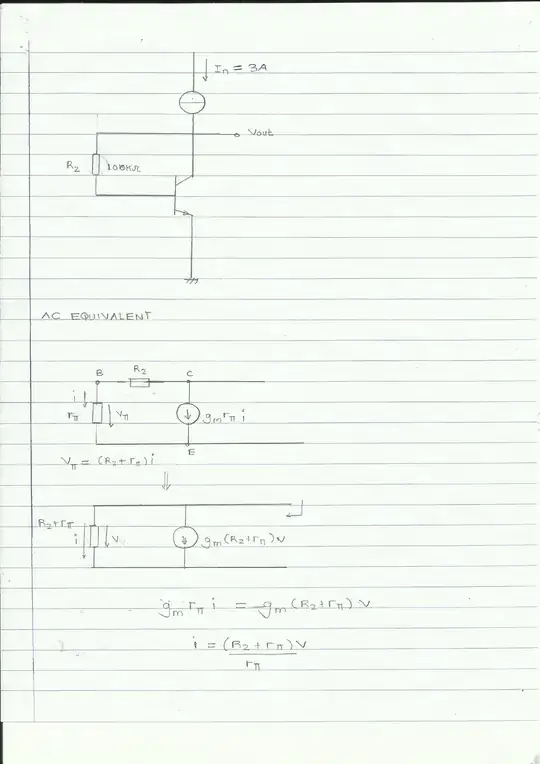 In = 3A
Vout
R2 100KΩ
AC EQUIVALENT
B R2 C
i
rπ Vπ gm rπ i
E
Vπ = (R2 + rπ) i
⇓
R2 + rπ
i V gm (R2 + rπ) v
gm rπ i = gm (R2 + rπ) v
i = (R2 + rπ) v
rπ